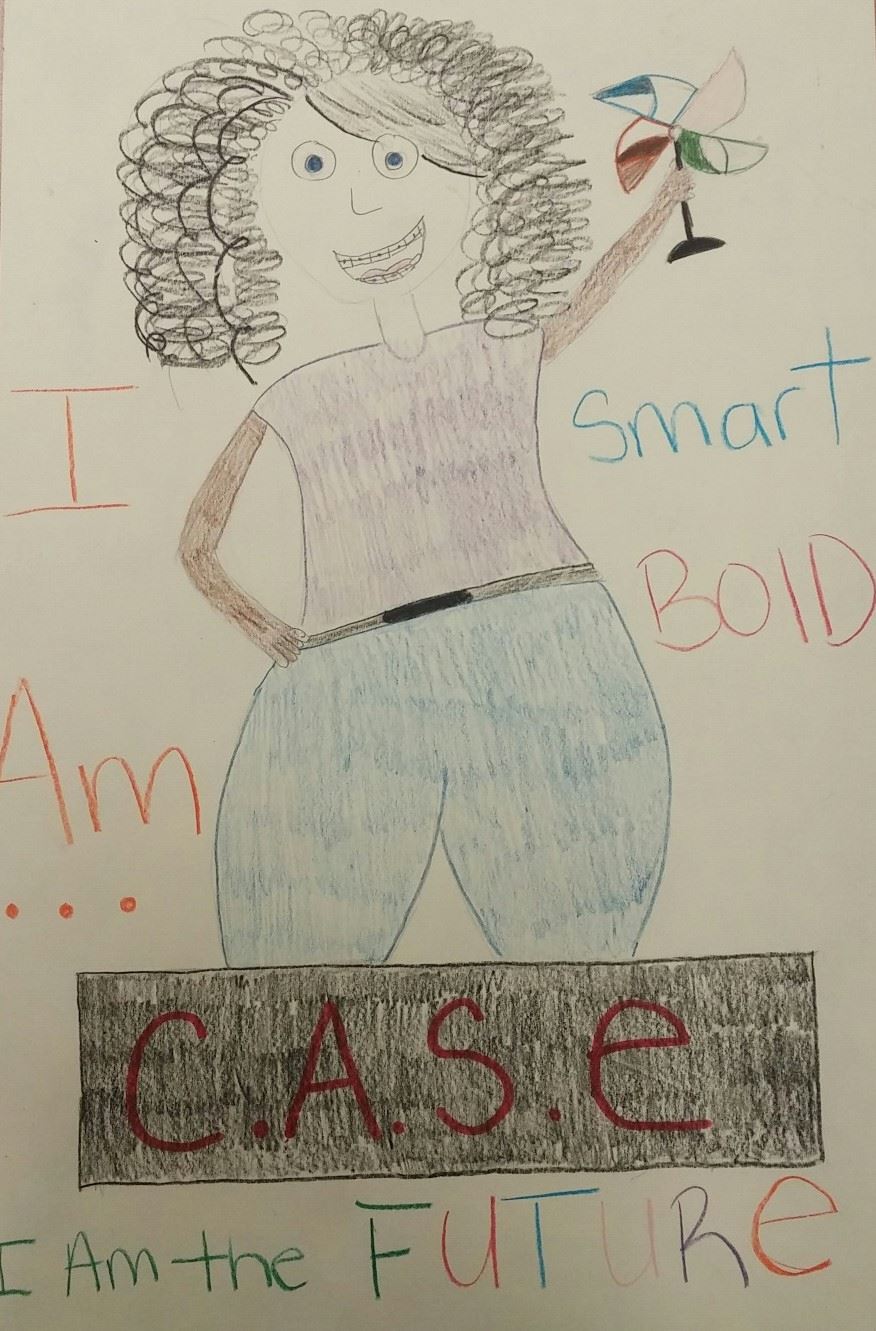 I
Am
...
Smart
BOlD
C.A.S.e
I Am the FUTURe